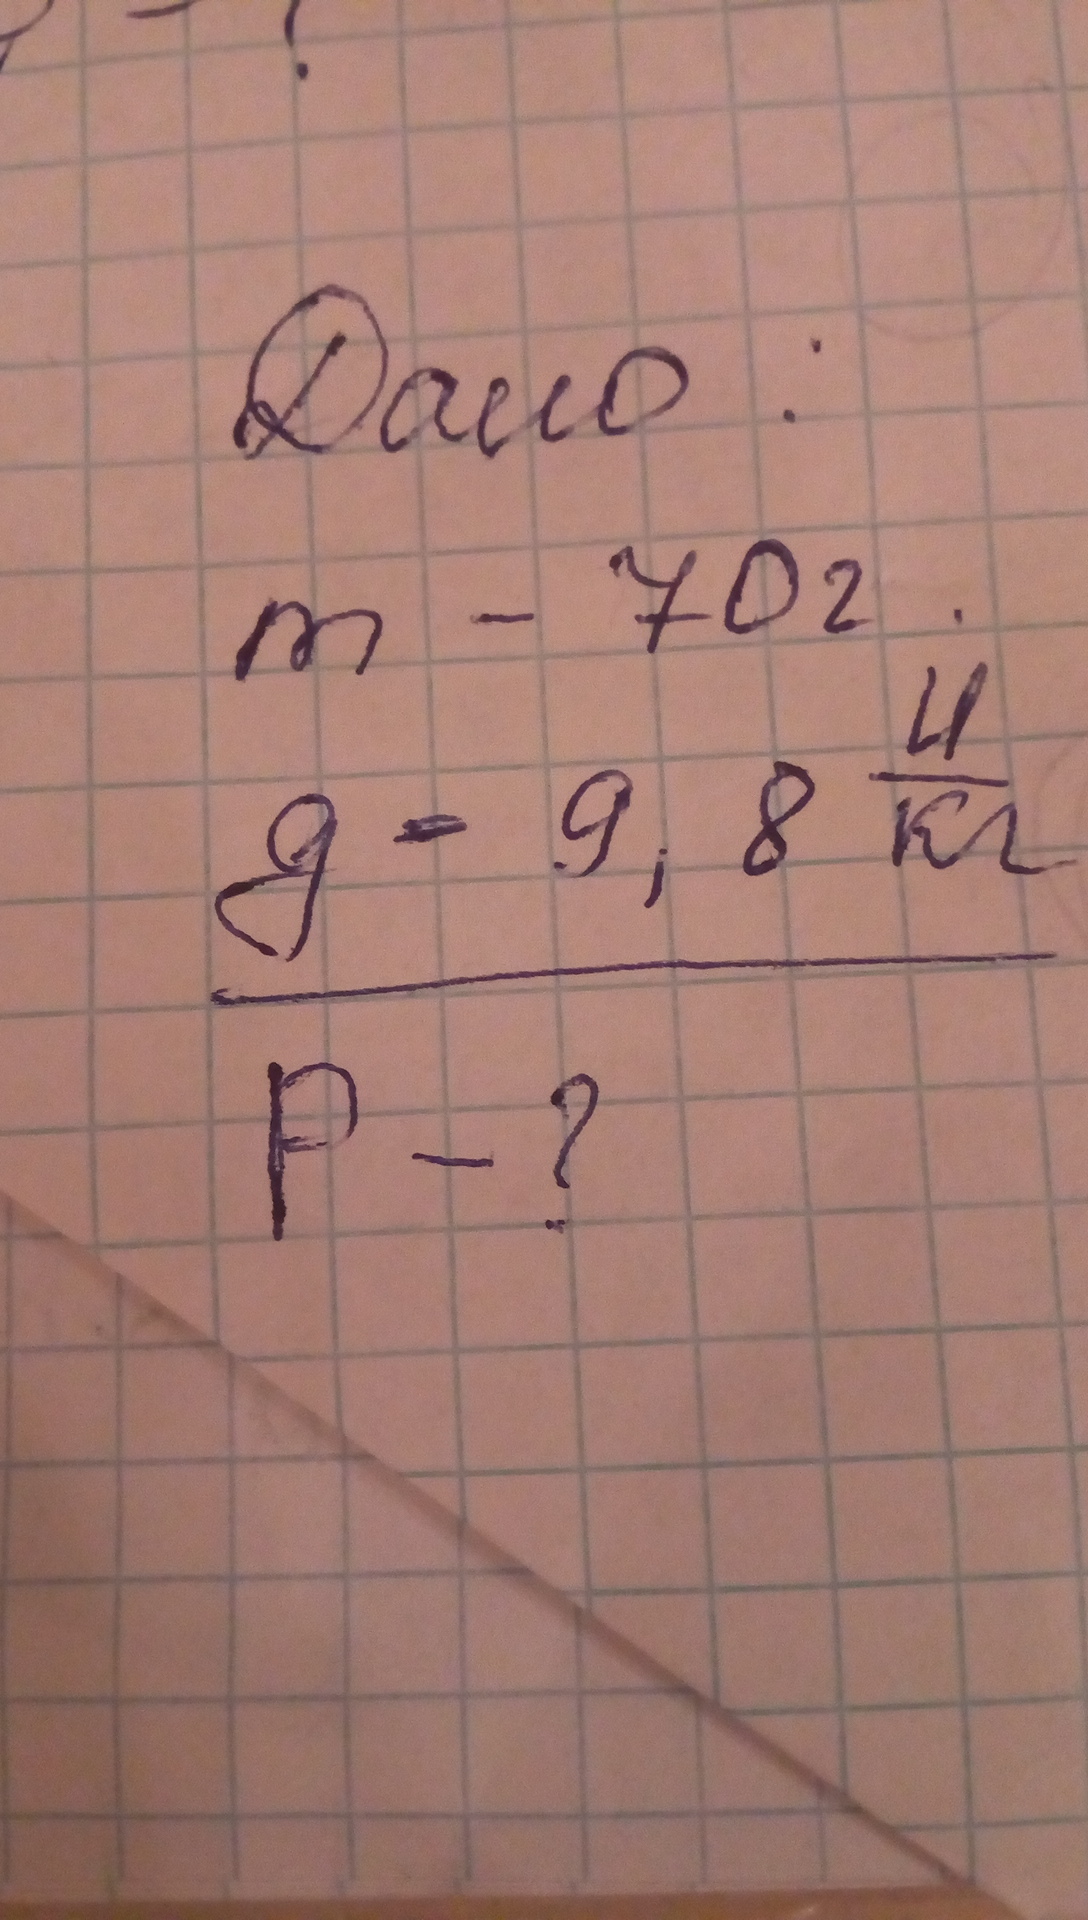 Дано:
m - 70г.
g = 9,8 Н/кг
P - ?